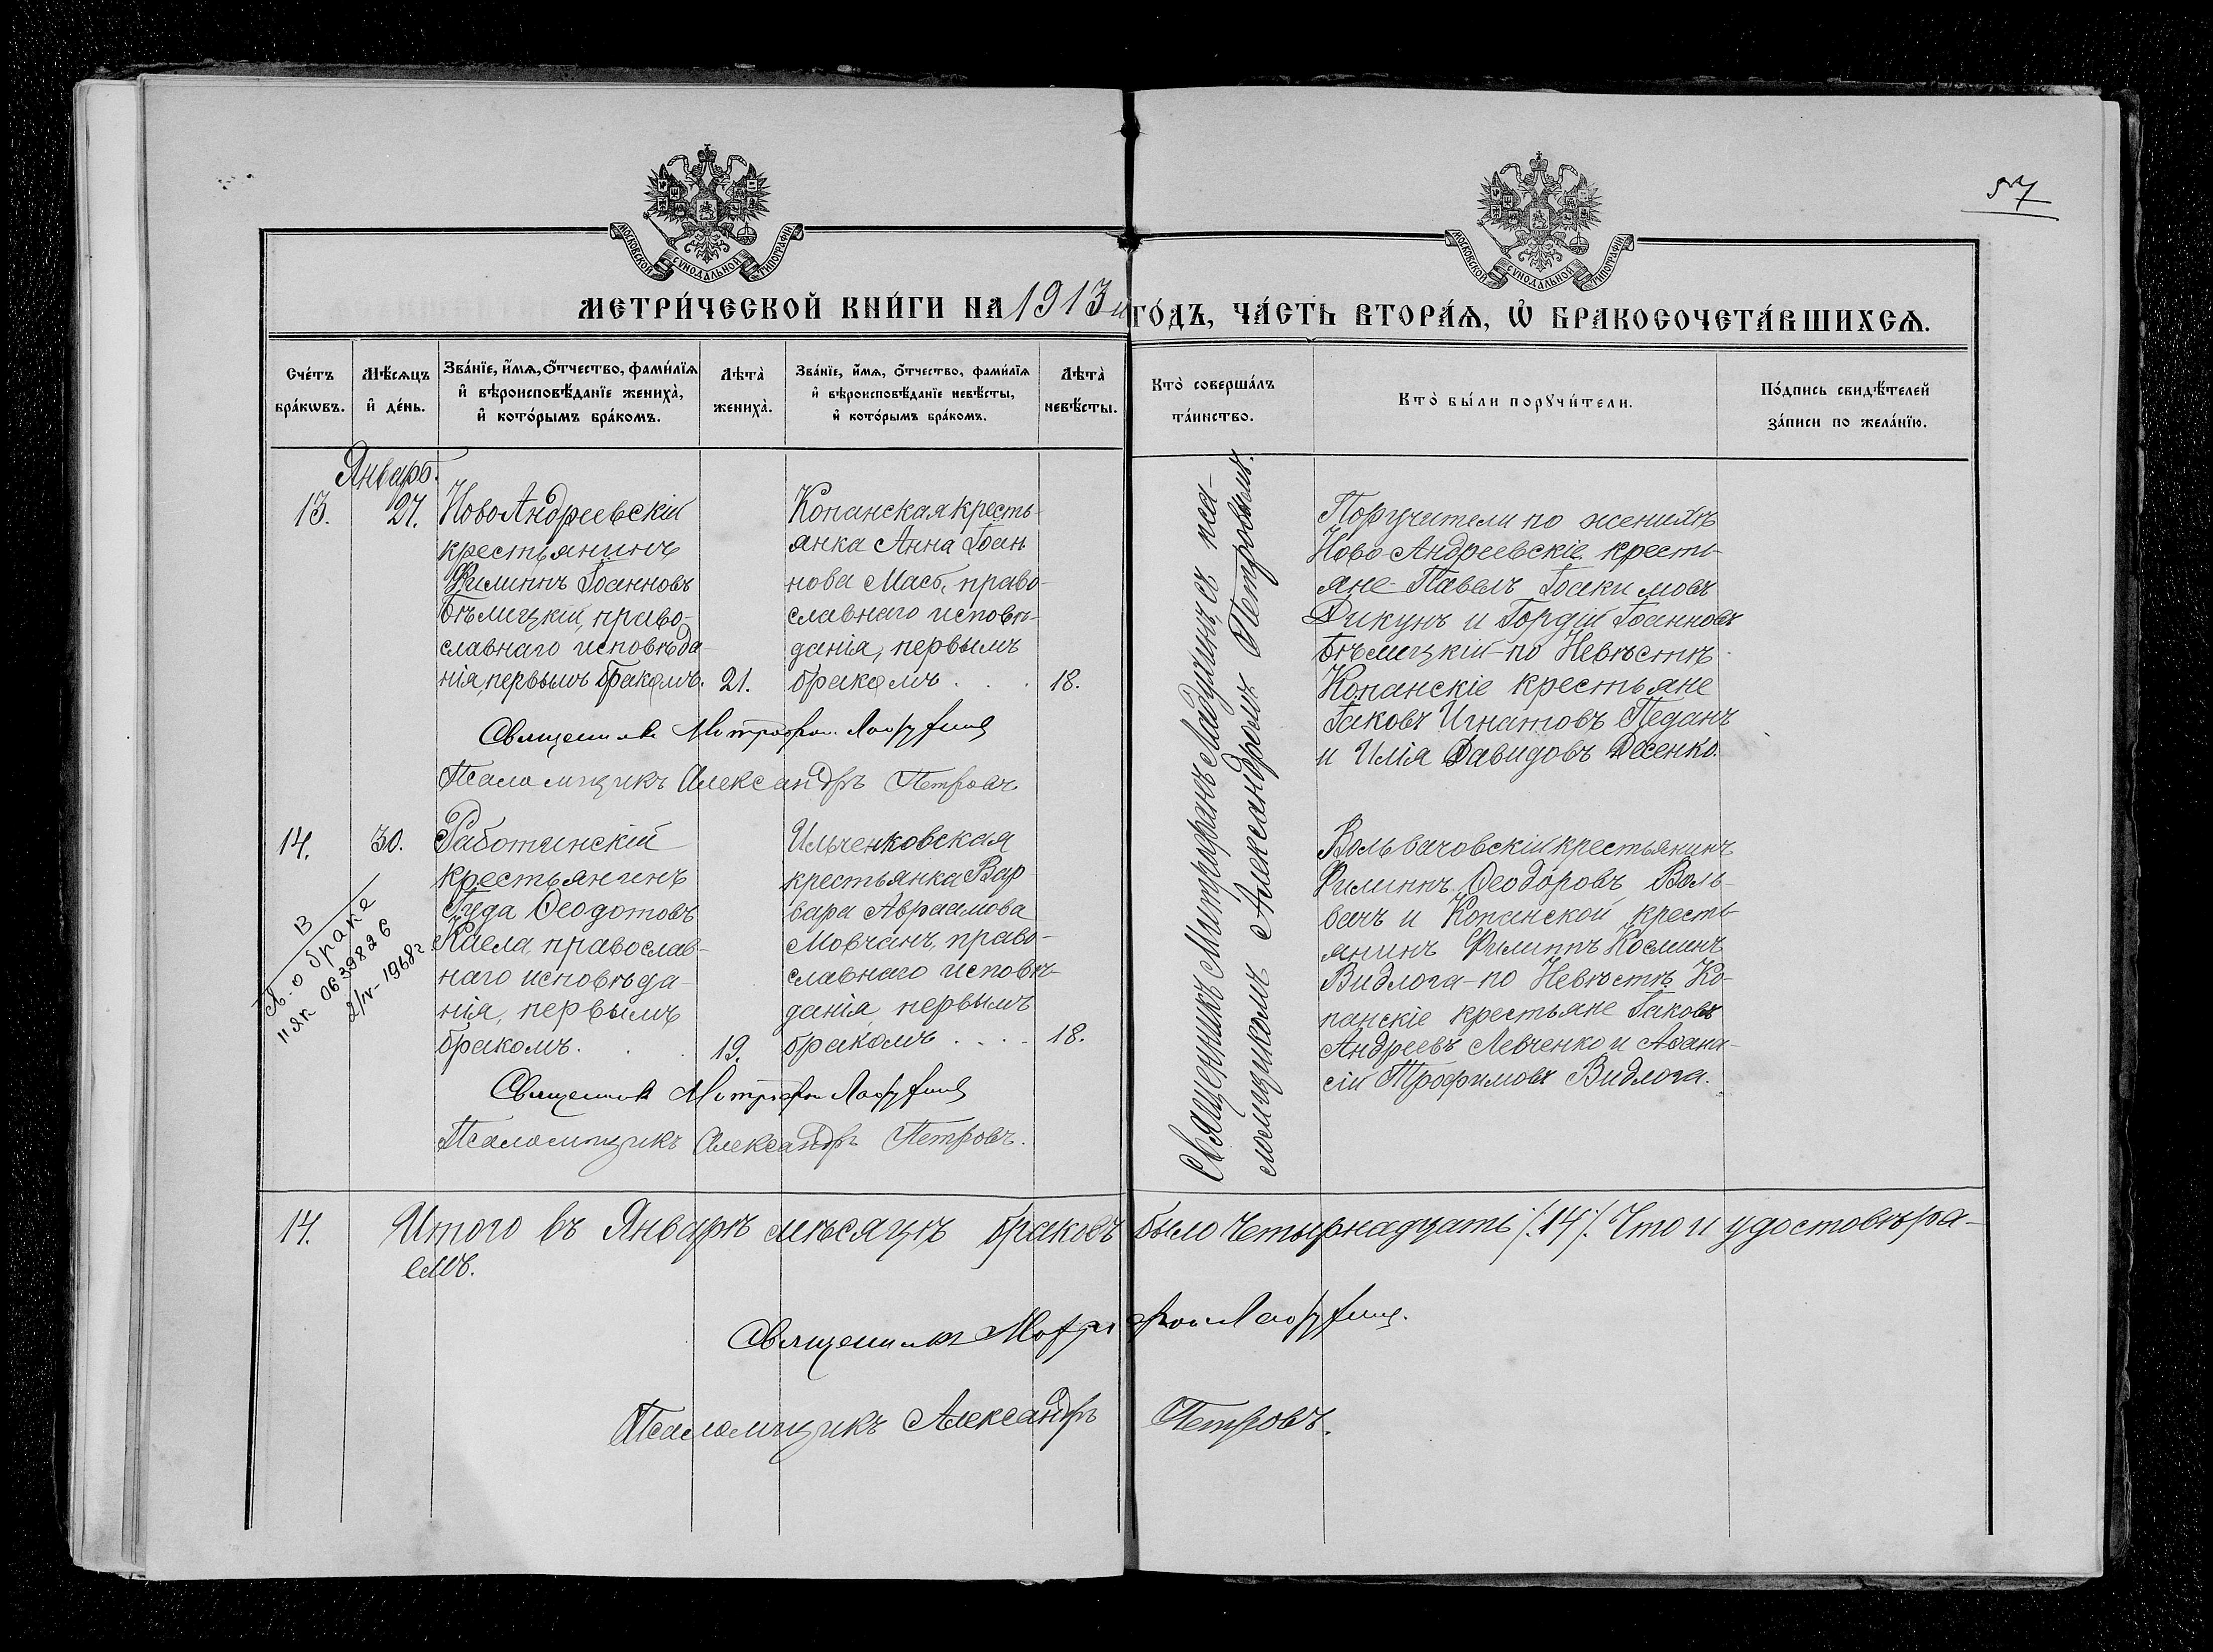 57
МОСКОВСКОЙ СУНОДАЛЬНОЙ ТИПОГРАФІИ
МОСКОВСКОЙ СУНОДАЛЬНОЙ ТИПОГРАФІИ
МЕТРИ́ЧЕСКОЙ КНИ́ГИ НА 1913 й ГО́ДЪ, ЧА́СТЬ ВТОРА́Ѧ, Ѡ҆ БРАКОСОЧЕТА́ВШИХСѦ.
Сче́тъ бра́кѡвъ.
Мѣ́сѧцъ и҆ де́нь.
Зва́нїе, и҆́мѧ, ѻ҆́тчество, фами́лїѧ
и҆ вѣроисповѣ́данїе жениха̀,
и҆ кото́рымъ бра́комъ.
Лѣта̀ жениха̀.
Зва́нїе, и҆́мѧ, ѻ҆́тчество, фами́лїѧ
и҆ вѣроисповѣ́данїе невѣ́сты,
и҆ кото́рымъ бра́комъ.
Лѣта̀ невѣ́сты.
Кто̀ соверша́лъ
та́инство.
Кто̀ бы́ли порꙋчи́тели.
По́дпись свидѣ́телей
за́писи по жела́нїю.
Январь.
13.
27.
НовоАндреевскій
крестьянинъ
Филиппъ Іоанновъ
Бѣлицкій, право-
славнаго исповѣда-
нія, первымъ бракомъ.
21.
Копанская кресть-
янка Анна Іоан
нова Масб, право-
славнаго исповѣ-
данія, первымъ
бракомъ . . .
18.
Поручители по женихѣ
Ново-Андреевскіе кресть-
яне Павелъ Іоакимовъ
Дикунъ и Гордій Іоанновъ
Бѣлицкій - по Невѣстѣ
Копанскіе крестьяне
Іаковъ Игнатовъ Педанъ
и Илія Давидовъ Десенко.
Священникъ Митрофан
Псаломщикъ Александръ Петровъ
14.
30.
Работинскій
крестьянинъ
Іуда Ѳеодотовъ
Каела православ-
наго исповѣда-
нія, первымъ
бракомъ. . .
19.
Ильченковская
крестьянка Вар
вара Авраамова
Мовчанъ, право-
славнаго исповѣ-
данія первымъ
бракомъ . . . .
18.
Вольвачовскій крестьянинъ
Филиппъ Ѳеодоровъ Воль-
вачъ и Копанской кресть-
янинъ Филиппъ Косминъ
Видлога - по Невѣстѣ Ко-
панскіе крестьяне Іаковъ
Андреевъ Левченко и Аѳана-
сій Трофимовъ Видлога.
В
св. о браке
II ЯК 0639826
2/IV-1968 г.
Священникъ Митрофан
Псаломщикъ Александръ Петровъ.
Священникъ Митрофанъ с пса-
ломщикомъ Александромъ Петровымъ.
14.
Итого въ Январѣ мѣсяцѣ браковъ было четырнадцать /.14./. Что и удостовѣря-
емъ.
Священникъ Митрофан
Псаломщикъ Александръ Петровъ.